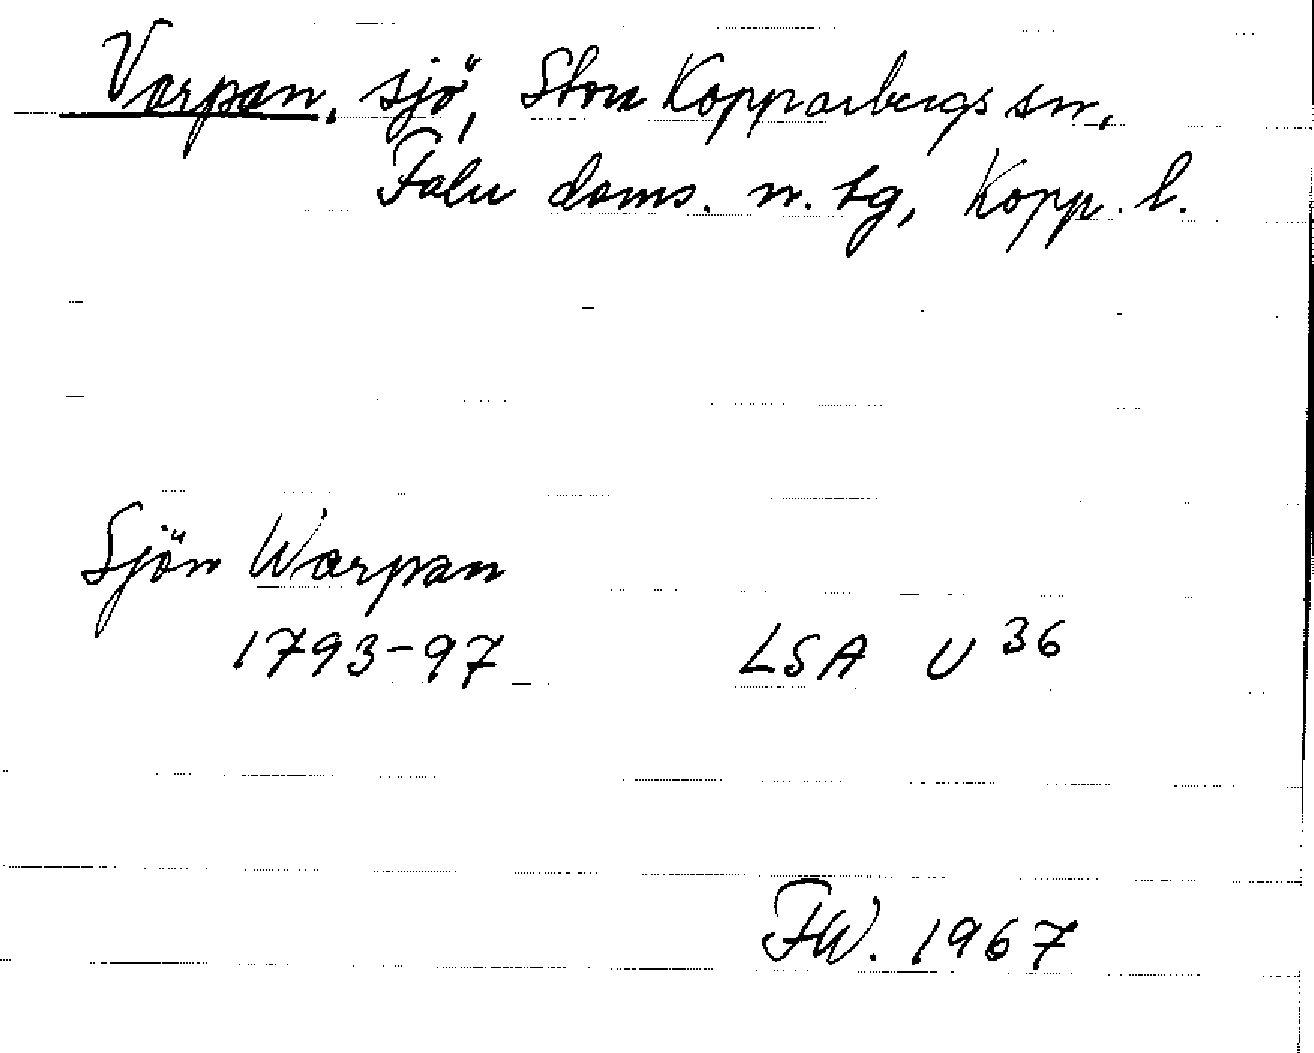 Varpan, sjö, Stora Kopparbergs sn,
Falu doms. n. tg, Kopp. l.
Sjön Warpan
1793-97 LSA U 36
FW. 1967